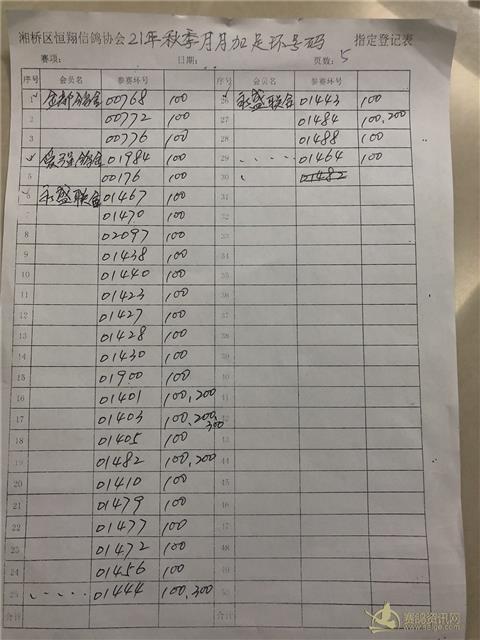 湘桥区恒翔信鸽协会 21年秋季月月加足环号码 指定登记表
赛项: 日期: 页数: 5
序号 会员名 参赛环号 序号 会员名 参赛环号
1 00768 100 26 永盛联合 01443 100
2 00772 100 27 01484 100,200
3 00776 100 28 01488 100
4 01984 100 29 ..... 01464 100
5 00176 100 30 01482
6 永盛联合 01467 100 31
7 01470 100 32
8 02097 100 33
9 01438 100 34
10 01440 100 35
11 01423 100 36
12 01427 100 37
13 01428 100 38
14 01430 100 39
15 01900 100 40
16 01401 100,200 41
17 01403 100,200,300 42
18 01405 100 43
19 01482 100,200 44
20 01410 100 45
21 01479 100 46
22 01477 100 47
23 01472 100 48
24 01456 100 49
25 ..... 01444 100,300 50
合计 合计
赛鸽资讯网